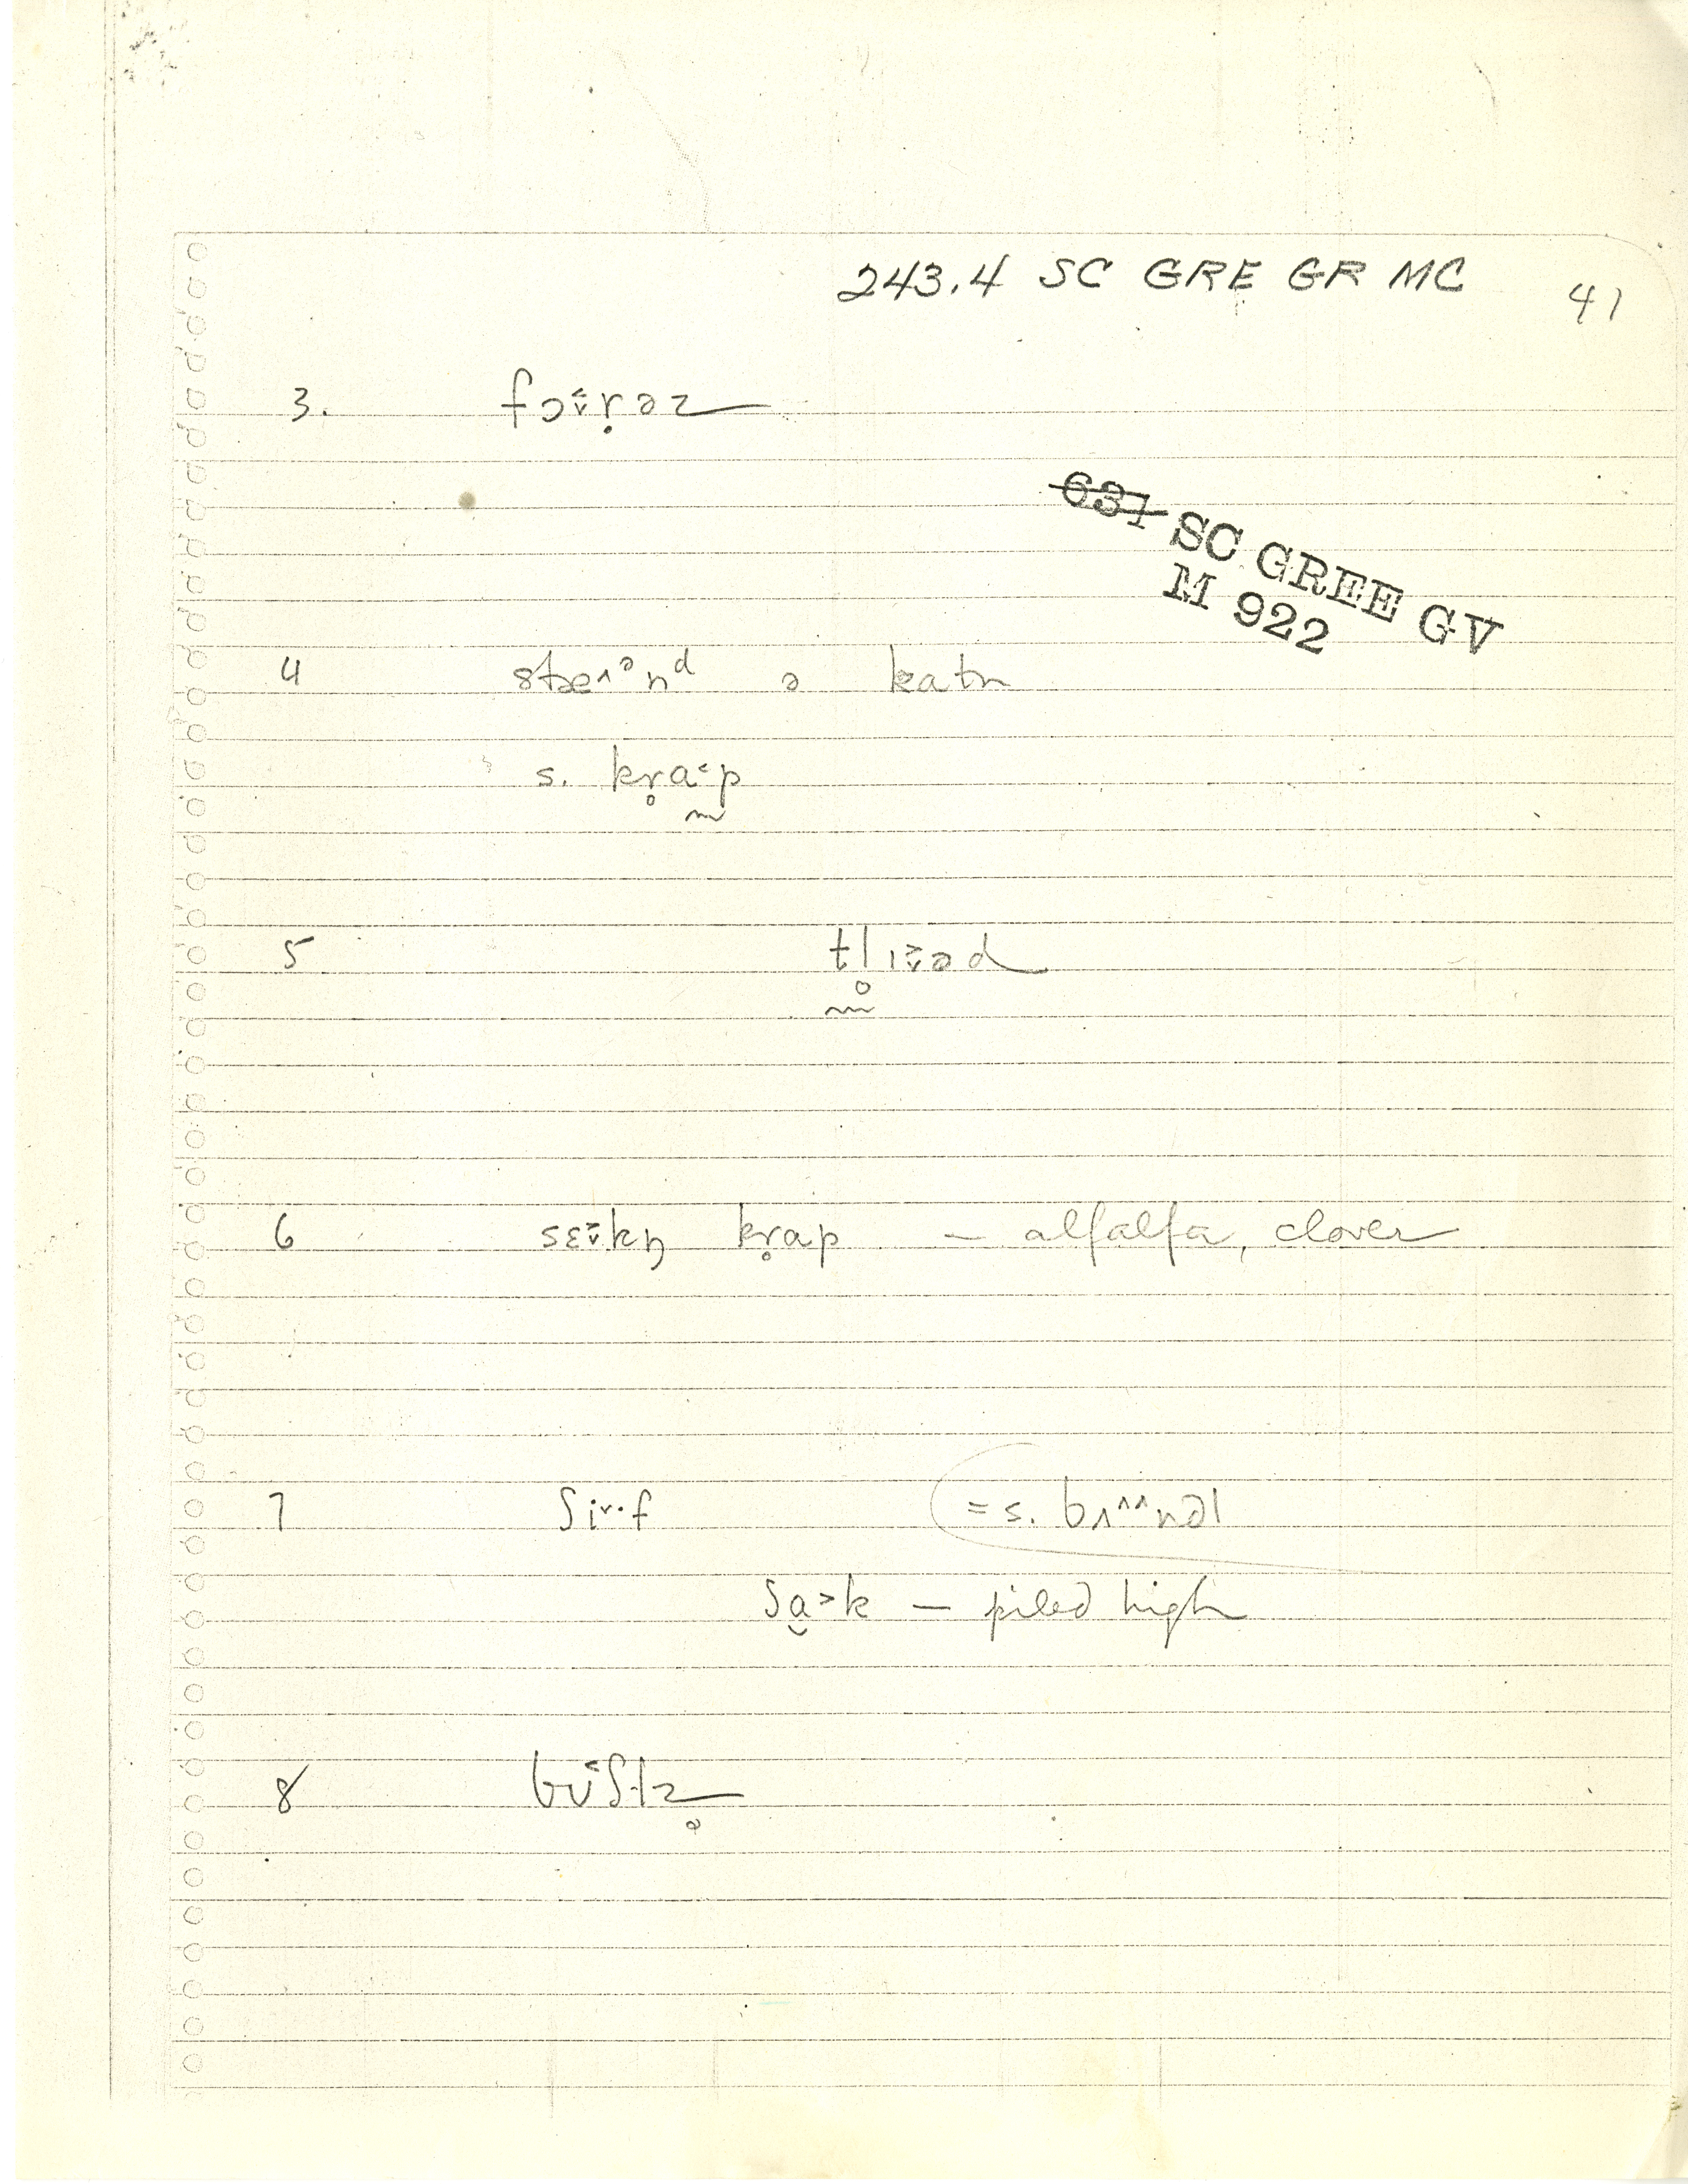 243.4 SC GRE GR MC 41
3. fɔ˂̬r̥əz
637 SC GREE GV
M 922
4 stæ˄ᵊnᵈ ə katn
s. kr̥a˂p
5 tl̥ɪ˃̬əd
6 sɛ˃̬kn̩ kr̥ap – alfalfa, clover
7 ʃi˅·f =s. bʌ^^nəl
ʃɑ˃k – piled high
8 bʊ˂ʃlz̥